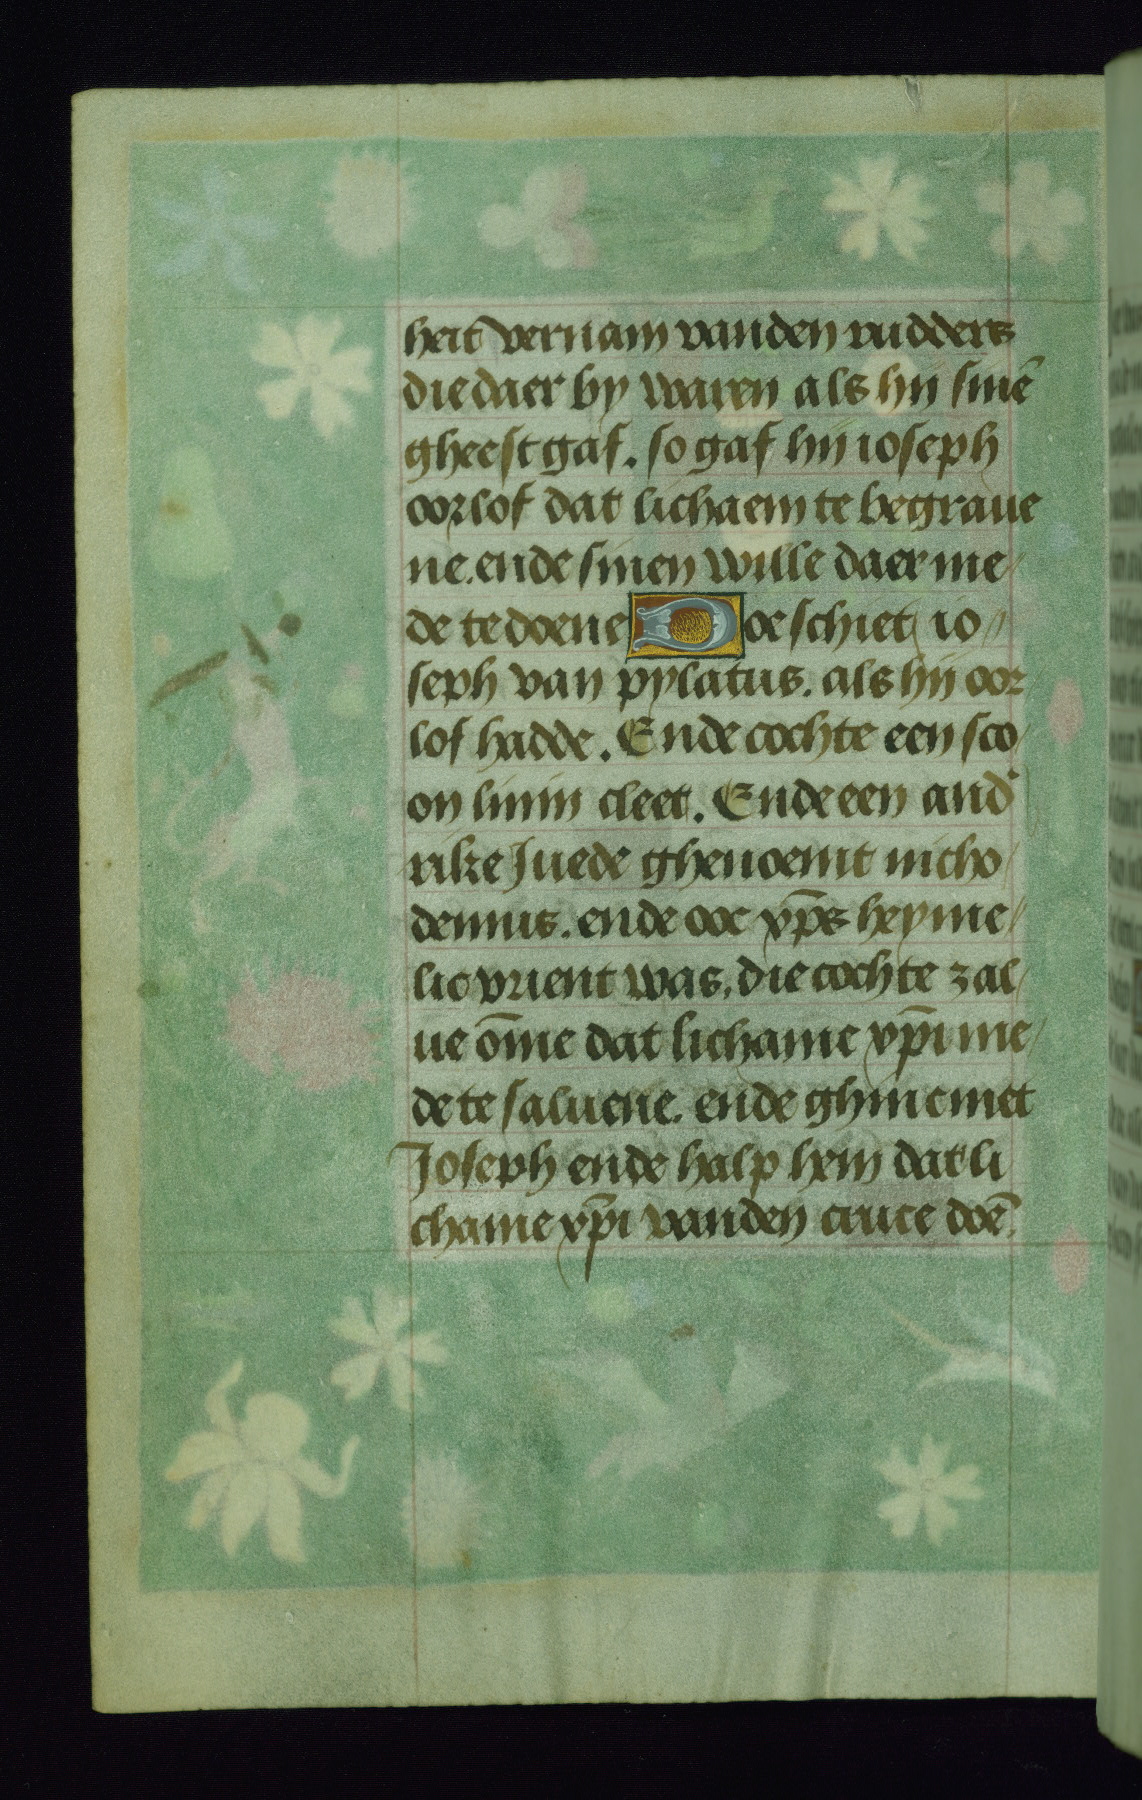 heit vernam vanden rudders
die daer by waren als hij sinē
gheest gaf. so gaf hij ioseph
oorlof dat lichaem te begraue
ne. ende sinen wille daer me/
de te doene Doe schiet io//
seph van pylatus. als hij oor
lof hadde. Ende cochte een sco/
on linin cleet. Ende een and'
rike Juede ghenoemt nicho/
demus. ende ooc xp̄s heyme//
lic vrient was, die cochte zal/
ue ōme dat lichame xp̄i me/
de te saluene. ende ghinc met
Joseph ende halp hem dat li
chame xp̄i vanden cruce doē.